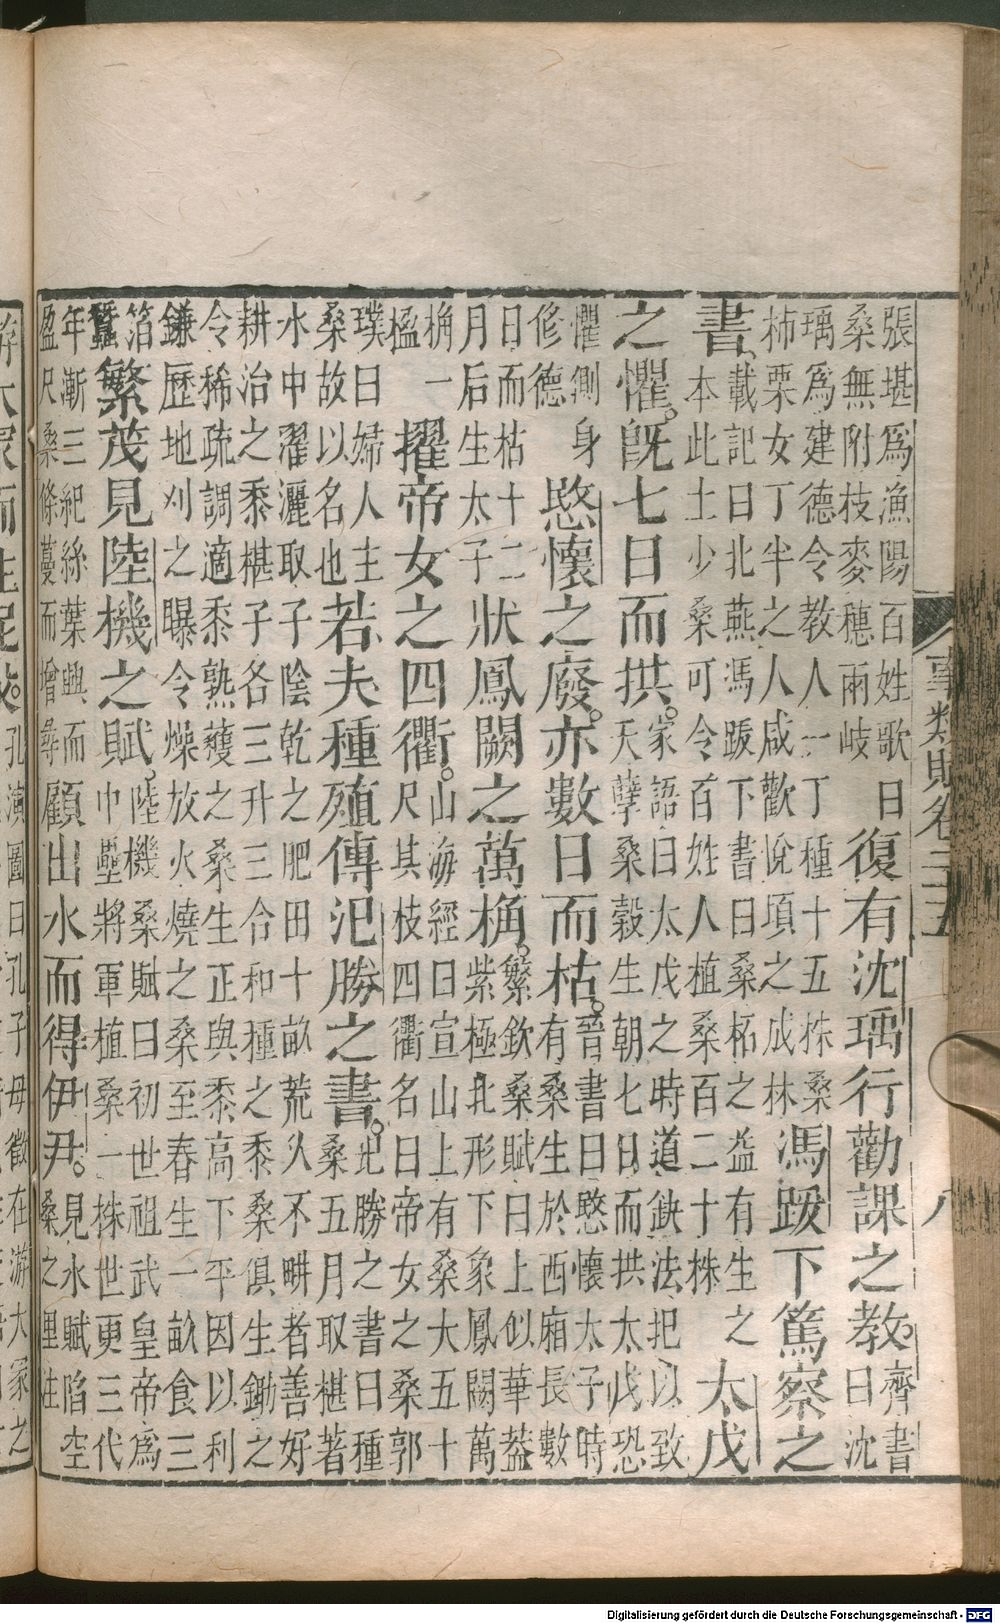 張堪爲漁陽百姓歌曰
桑無附枝麥穗兩岐
復有沈瑀行勸課之教。
齊書
曰沈
瑀爲建德令教人一丁種十五株桑
柿栗女丁半之人咸歡悅頃之成林
馮跋下篤察之
書。
載記曰北燕馮跋下書曰桑柘之益有生之
本此土少桑可令百姓人植桑百二十株
太戊
之懼。旣七日而拱。
家語曰太戊之時道缺法把以致
天孽桑穀生朝七日而拱太戊恐
懼側身
修德
愍懷之廢。亦數日而枯。
晉書曰愍懷太子時
有桑生於西廂長數
日而枯十二
月后生太子
狀鳳闕之萬桷。
繁欽桑賦曰上似華蓋
紫極北形下象鳳闕萬
桷一
楹
擢帝女之四衢。
山海經曰宣山上有桑大五十
尺其枝四衢名曰帝女之桑郭
璞曰婦人主
桑故以名也
若夫種殖傳氾勝之書。
氾勝之書曰種
桑五月取椹著
水中濯灑取子陰乾之肥田十畝荒久不畊者善好
耕治之黍椹子各三升三合和種之黍桑俱生鋤之
令稀疏調適黍熟穫之桑生正與黍高下平因以利
鎌歷地刈之曝令燥放火燒之桑至春生一畝食三
箔
蠶
繁茂見陸機之賦。
陸機桑賦曰初世祖武皇帝爲
中壘將軍植桑一株世更三代
年漸三紀絲葉興而
盈尺桑條蔓而增尋
顧出水而得伊尹。
見水賦陷空
桑之里注
事類賦卷二十五
八
孔演圖曰孔子母徵在游大冢之
Digitalisierung gefördert durch die Deutsche Forschungsgemeinschaft - DFG